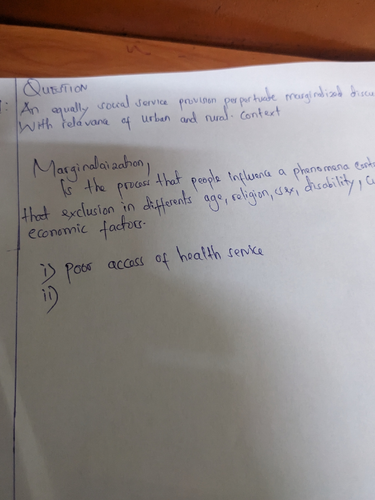 QUESTION
An equally social service provision perpertuate marginalized discu
With relevane of urban and rural context
Marginalaization,
is the process that people influence a phenomena
that exclusion in differents age, religion, sex, disability,
economic factors.
i) poor access of health service
ii)